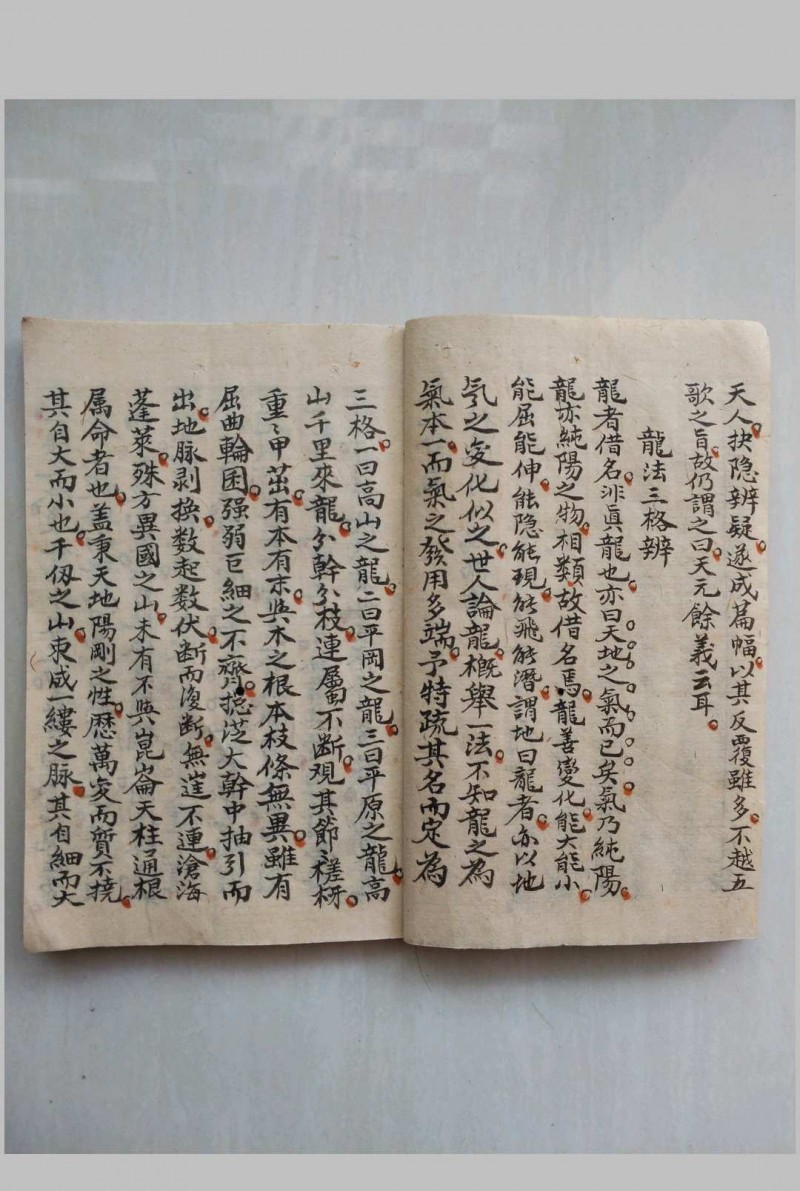 天人抉隐辨疑。遂成萹幅。以其反覆雖多。不越五
歌之旨。故仍謂之曰天元餘義云耳。
龍法三格辨
龍者借名。非真龍也。亦曰天地之氣而已矣。氣乃純陽。
龍亦純陽之物。相類故借名焉。龍善變化。能大能小。
能屈能伸。能隐能現。能飛能潛。謂地曰龍者。亦以地
氣之变化似之。世人論龍。概舉一法。不知龍之為
氣本一。而氣之發用多端。予特疏其名而定為
三格。一曰高山之龍。二曰平岡之龍。三曰平原之龍。高
山千里來龍。分幹分枝。連屬不斷。觀其節〻槎枒。
重〻甲茁。有本有末。與木之根本枝條無異。雖有
屈曲輪囷。强弱巨細之不齊。揔從大幹中抽引而
出。地脉剥換。数起数伏。断而復断。無遠不連。滄海
蓬萊。殊方異國之山。未有不與崑崙天柱通根
属命者也。盖秉天地陽剛之性。歷萬変而質不撓。
其自大而小也。千仭之山。束成一縷之脉。其自細而大